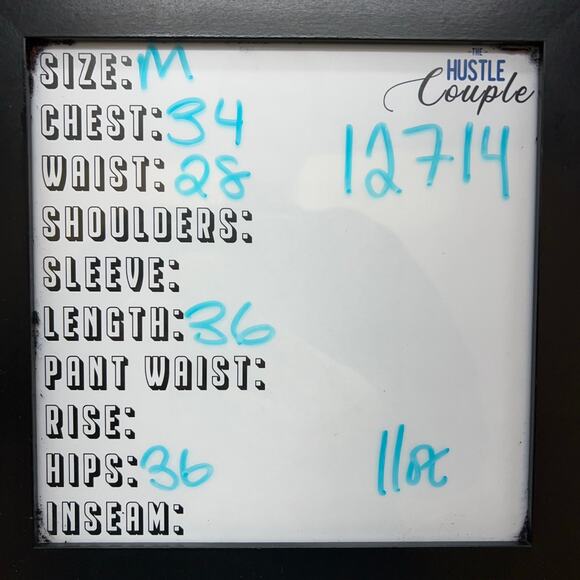 SIZE: M
-THE-
HUSTLE
Couple
CHEST: 34
12714
WAIST: 28
SHOULDERS:
SLEEVE:
LENGTH: 36
PANT WAIST:
RISE:
HIPS: 36
11oz
INSEAM: